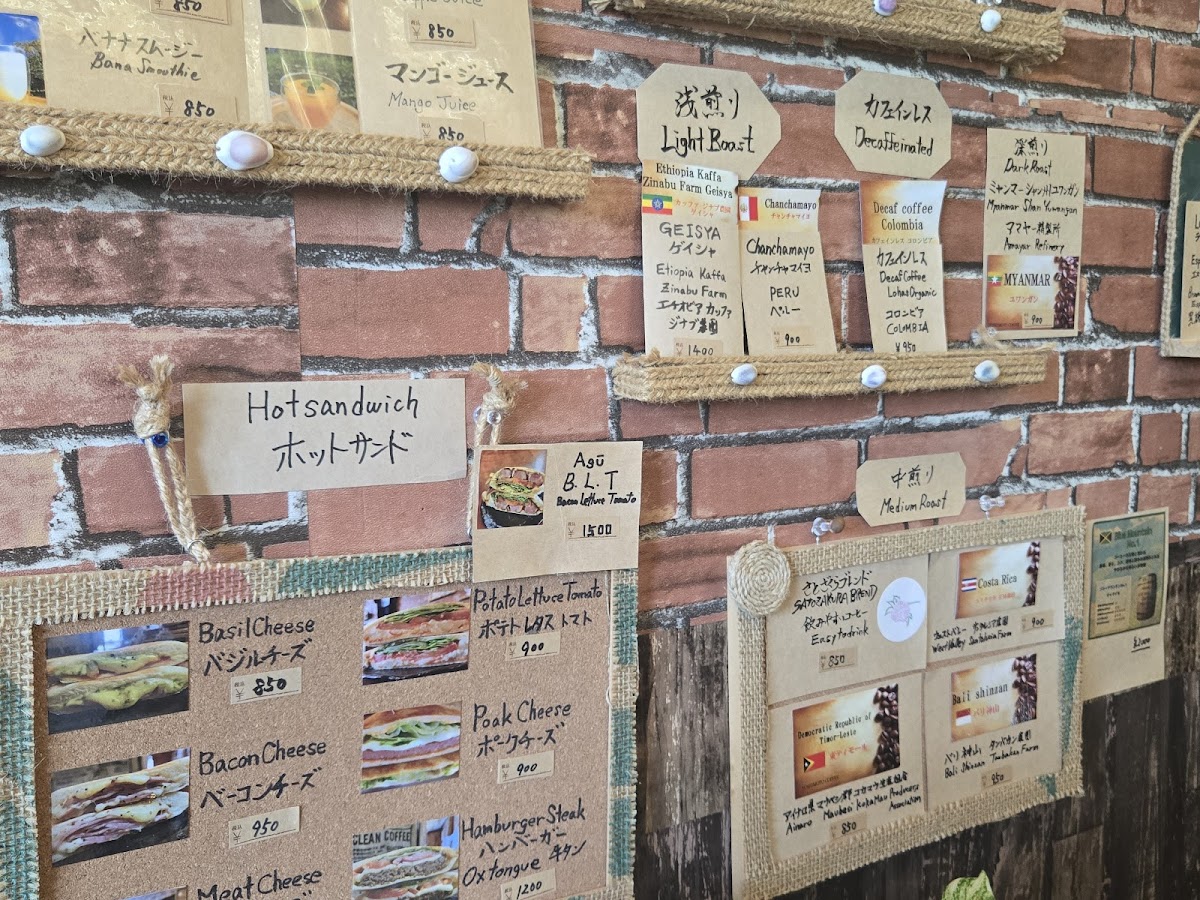 850
バナナスムージー
Bana Smoothie
850
850
マンゴージュース
Mango Juice
850
浅煎り
Light Boast
Ethiopia Kaffa
Zinabu Farm Geisya
GEISYA
ゲイシャ
Etiopia Kaffa
Zinabu Farm
エチオピア カッファ
ジナブ農園
1400
Chanchamayo
チャンチャマイヨ
Chanchamayo
チャンチャマイヨ
PERU
ペルー
900
カフェインレス
Decaffeinated
Decaf coffee
Colombia
カフェインレス コロンビア
カフェインレス
Decaf Coffee
Lohas Organic
コロンビア
COLOMBIA
¥950
深煎り
Dark Roast
ミャンマー シャン州 ユワンガン
Myanmar Shan Yuwangan
アマヤー精製所
Amayar Refinery
MYANMAR
ユワンガン
900
Hotsandwich
ホットサンド
Agū
B.L.T
Bacon Lettuce Tomato
1500
Basil Cheese
バジルチーズ
850
Bacon Cheese
ベーコンチーズ
950
Meat Cheese
Potato Lettuce Tomato
ポテト レタス トマト
900
Poak Cheese
ポークチーズ
900
CLEAN COFFEE
Hamburger Steak
ハンバーガー
Oxtongue 牛タン
1200
中煎り
Medium Roast
さとざくらブレンド
SATOZAKURA BREND
飲みやすいコーヒー
Easy to drink
850
Costa Rica
West Valley Santa lucia Farm
900
Democratic Republic of
Timor-Leste
東ティモール
Ainaro Maubasi Koka Mau Producers
Association
850
Bali shinzan
バリ神山
バリ神山 タンバカン農園
Bali Shinzan Tanbakan Farm
850
No.1
¥2000